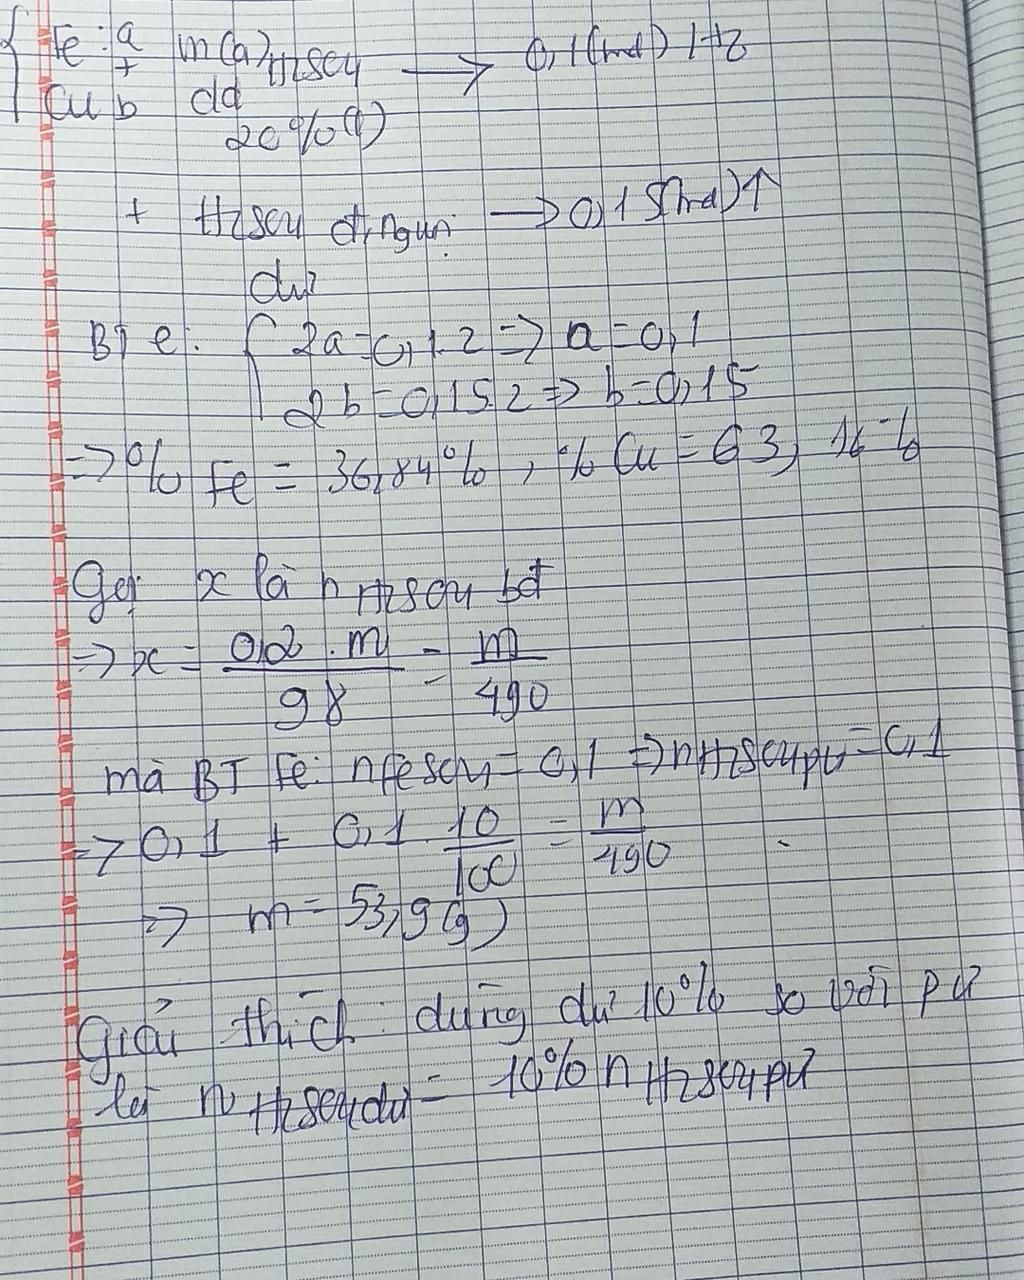 { Fe: a + m(g) H2SO4 → 0,1 (mol) H2
Cu b dd
20% (l)
+ H2SO4 đ, nguội → 0,15 (mol) ↑
dư
BT e: { 2a = 0,1.2 => a = 0,1
2b = 0,15.2 => b = 0,15
=> % Fe = 36,84%, % Cu = 63,16%
Gọi x là n H2SO4 bđ
=> x = 0,2 . m / 98 = m / 490
mà BT Fe: nFeSO4 = 0,1 => nH2SO4 pư = 0,1
=> 0,1 + 0,1 10/100 = m/490
=> m = 53,9 (g)
Giải thích: dùng dư 10% so với pư
là n H2SO4 dư = 10% n H2SO4 pư